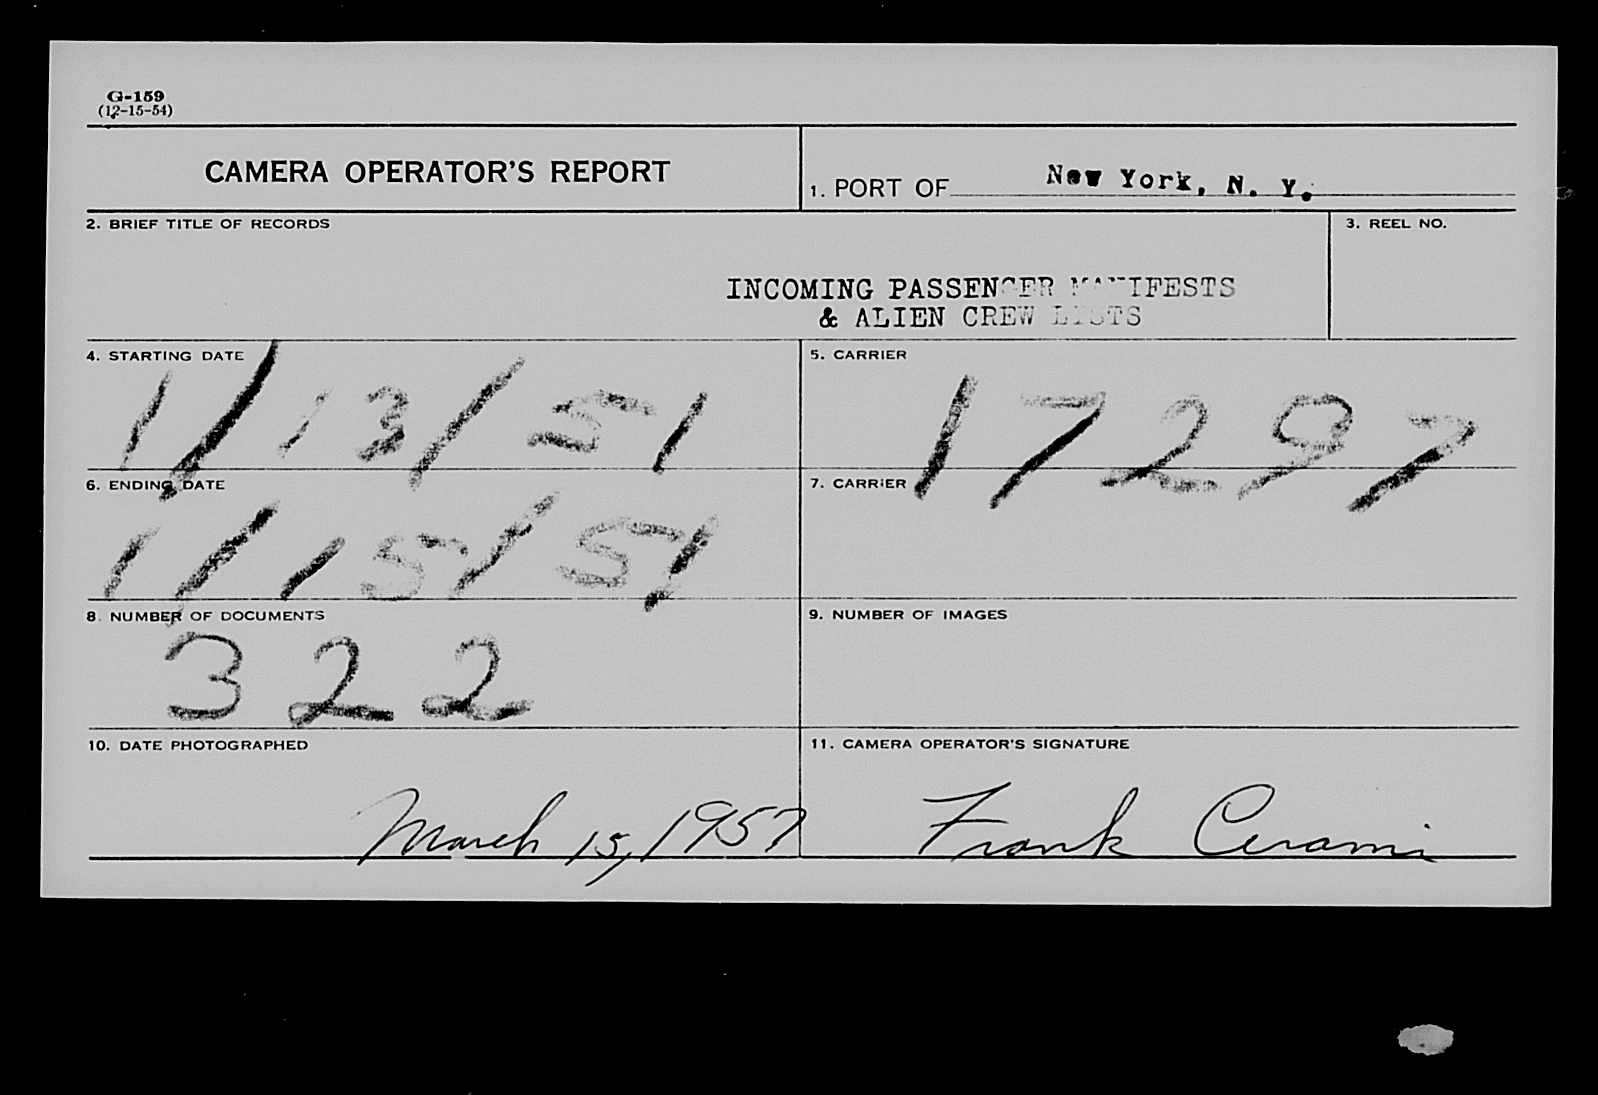 G-159
(12-15-54)
CAMERA OPERATOR'S REPORT
1. PORT OF New York, N. Y.
2. BRIEF TITLE OF RECORDS
3. REEL NO.
INCOMING PASSENGER MANIFESTS
& ALIEN CREW LISTS
4. STARTING DATE
1/13/51
5. CARRIER
17297
6. ENDING DATE
1/15/51
7. CARRIER
8. NUMBER OF DOCUMENTS
322
9. NUMBER OF IMAGES
10. DATE PHOTOGRAPHED
March 15, 1957
11. CAMERA OPERATOR'S SIGNATURE
Frank Cerami